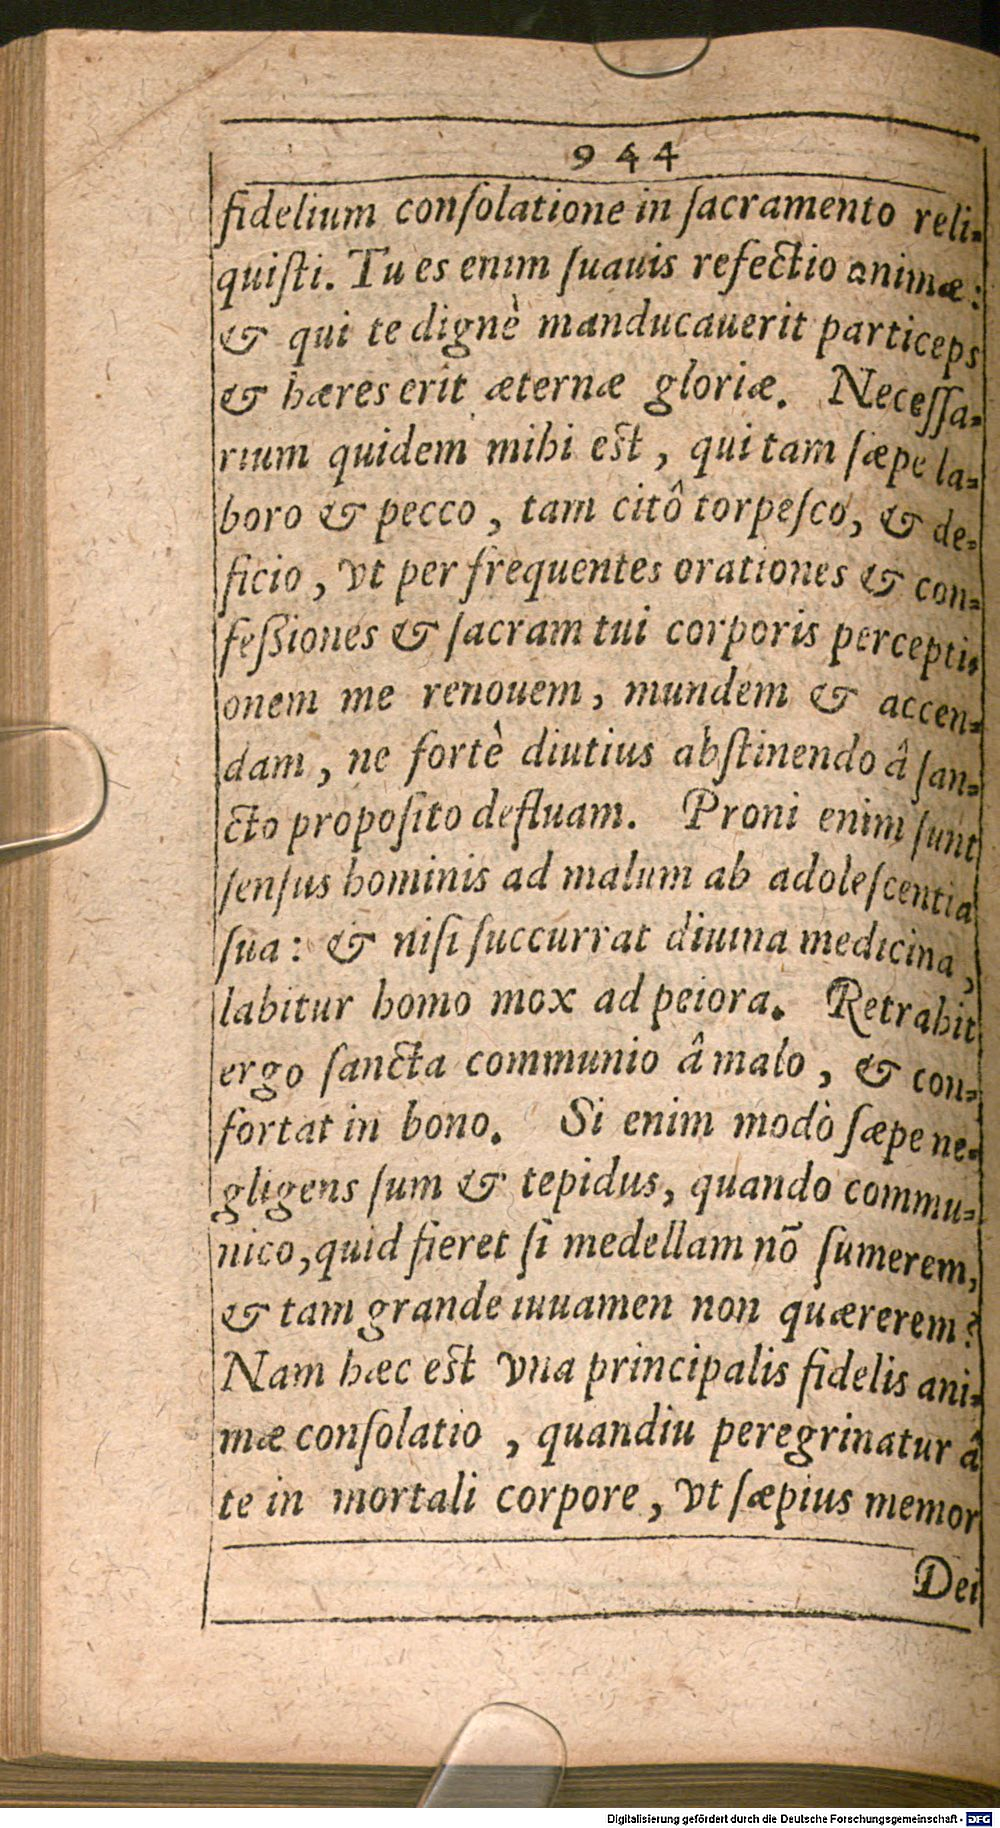 944
fidelium conſolatione in ſacramento reli-
quiſti. Tu es enim ſuauis refectio animæ:
& qui te dignè manducauerit particeps
& hæres erit æternæ gloriæ. Neceſſa-
rium quidem mihi est, qui tam ſæpe la-
boro & pecco, tam citô torpeſco, & de-
ficio, vt per frequentes orationes & con-
feßiones & ſacram tui corporis percepti-
onem me renouem, mundem & accen-
dam, ne fortè diutius abſtinendo â ſan-
cto propoſito defluam. Proni enim ſunt
ſenſus hominis ad malum ab adoleſcentia
ſua: & niſi ſuccurrat diuina medicina,
labitur homo mox ad peiora. Retrahit
ergo ſancta communio â malo, & con-
fortat in bono. Si enim modò ſæpe ne-
gligens ſum & tepidus, quando commu-
nico, quid fieret ſi medellam nõ ſumerem,
& tam grande iuuamen non quærerem?
Nam hæc est vna principalis fidelis ani-
mæ conſolatio, quandiu peregrinatur â
te in mortali corpore, vt ſæpius memor
Dei
Digitalisierung gefördert durch die Deutsche Forschungsgemeinschaft - DFG